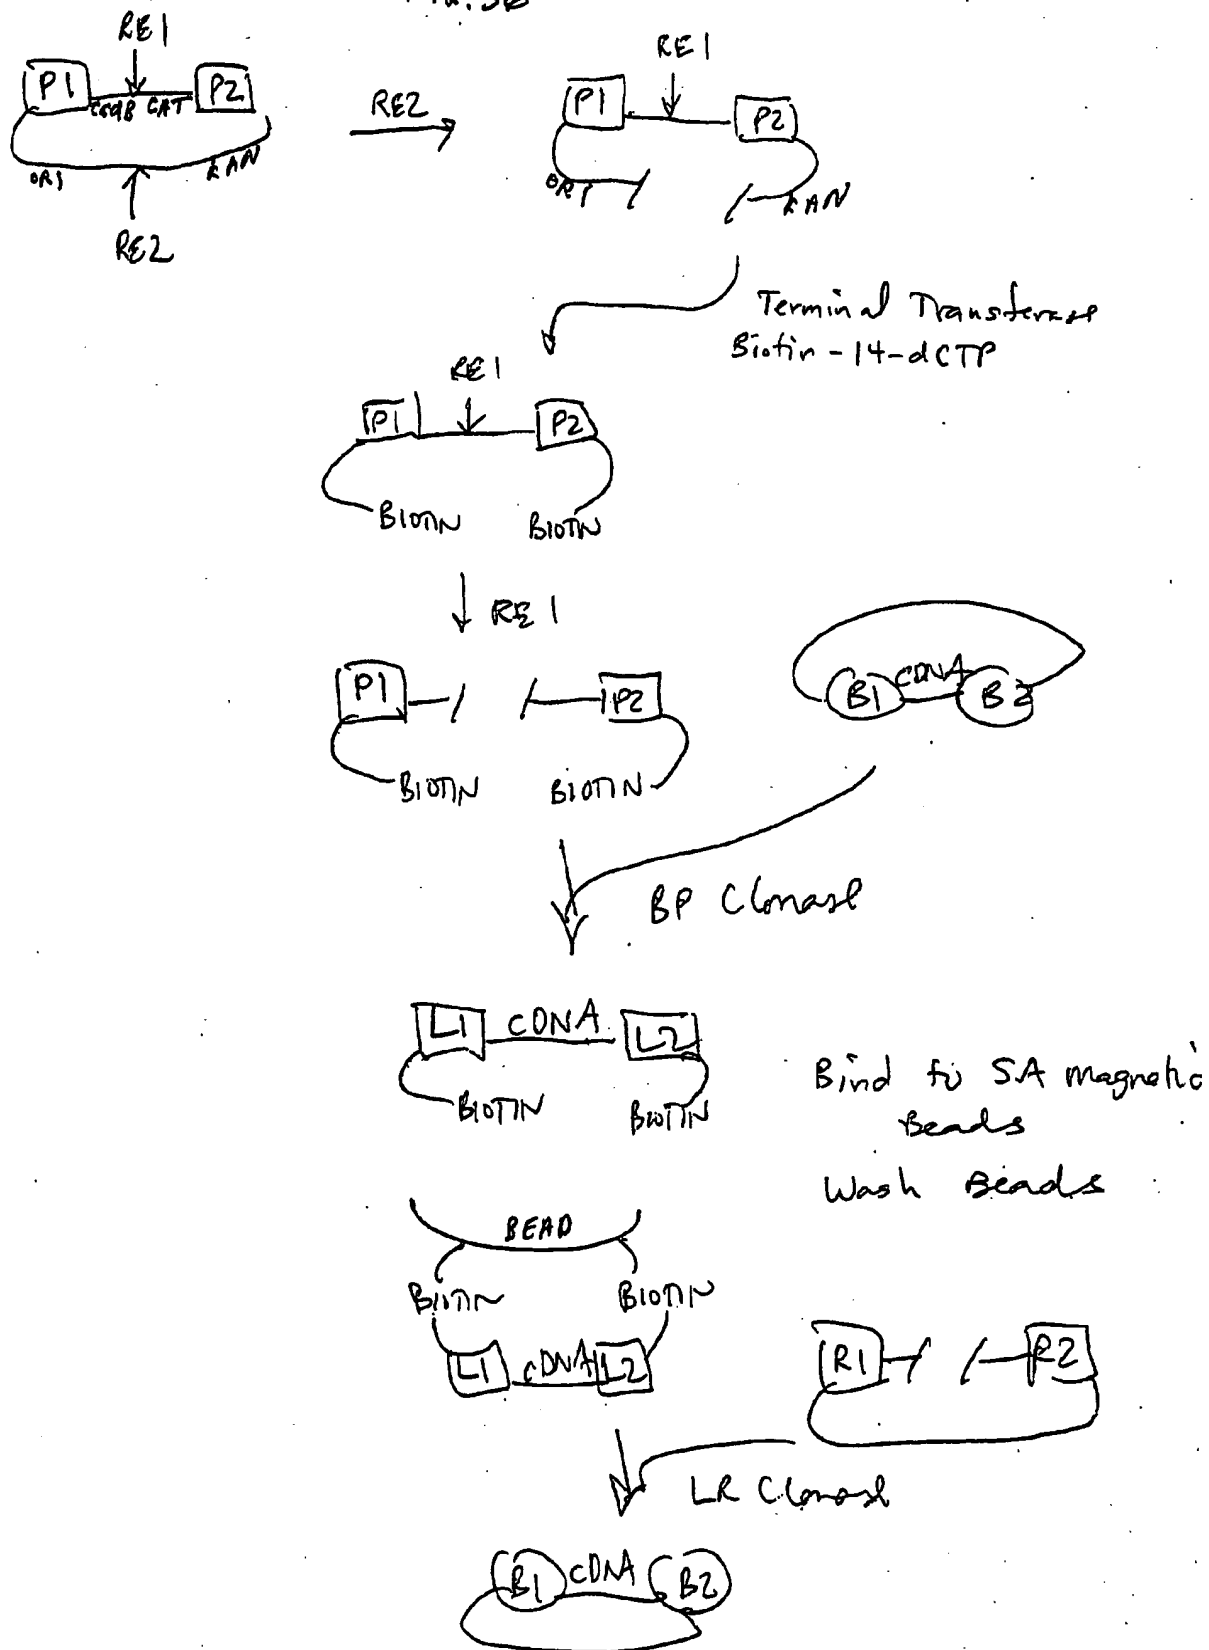 RE1
P1
P2
ccdB CAT
ORI
KAN
RE2
RE2
RE1
P1
P2
ORI
KAN
Terminal Transferase
Biotin-14-dCTP
RE1
P1
P2
BIOTIN
BIOTIN
RE1
P1
P2
BIOTIN
BIOTIN
CDNA
B1
B2
BP Clonase
L1
CDNA
L2
BIOTIN
BIOTIN
Bind to SA magnetic
Beads
Wash Beads
BEAD
BIOTIN
BIOTIN
L1
cDNA
L2
R1
R2
LR Clonase
B1
CDNA
B2